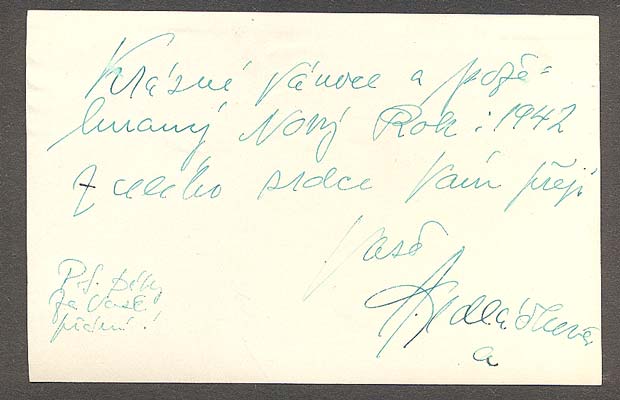 Krásné Vánoce a pože-
hnaný Nový Rok: 1942
z celého srdce Vám přeji
Vaše
A. Sedláčková
P.S. Díky
za Vaše
přání!